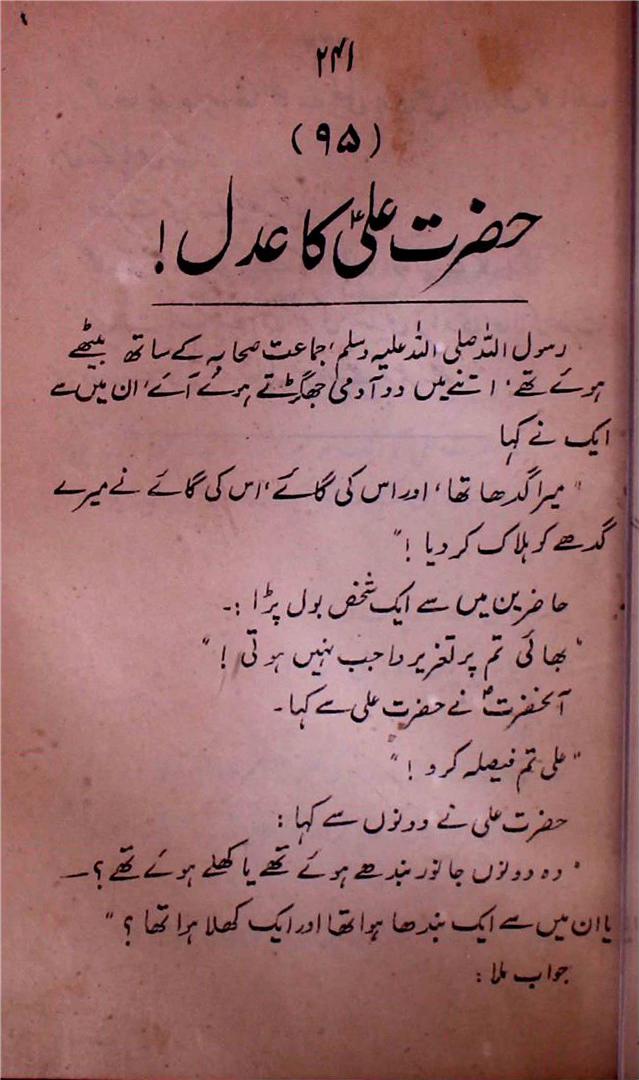 ۲۴۱
(۹۵)
حضرت علیؓ کا عدل!
رسول اللہ صلی اللہ علیہ وسلم، جماعت صحابہ کے ساتھ بیٹھے
ہوئے تھے، اتنے میں دو آدمی جھگڑتے ہوئے آئے، ان میں سے
ایک نے کہا
"میرا گدھا تھا، اور اس کی گائے، اس کی گائے نے میرے
گدھے کو ہلاک کر دیا!"
حاضرین میں سے ایک شخص بول پڑا :۔
"بھائی تم پر تعزیر واجب نہیں ہوتی!"
آنحضرتؐ نے حضرت علی سے کہا۔
"علی تم فیصلہ کرو!"
حضرت علی نے دونوں سے کہا:
"وہ دونوں جانور بندھے ہوئے تھے یا کھلے ہوئے تھے؟—
یا ان میں سے ایک بندھا ہوا تھا اور ایک کھلا ہوا تھا؟"
جواب ملا: